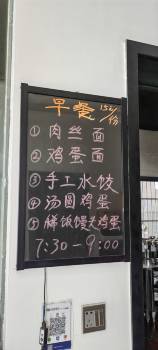 早餐 15元/份
①肉丝面
②鸡蛋面
③手工水饺
④汤圆鸡蛋
⑤稀饭馒头鸡蛋
7:30-9:00